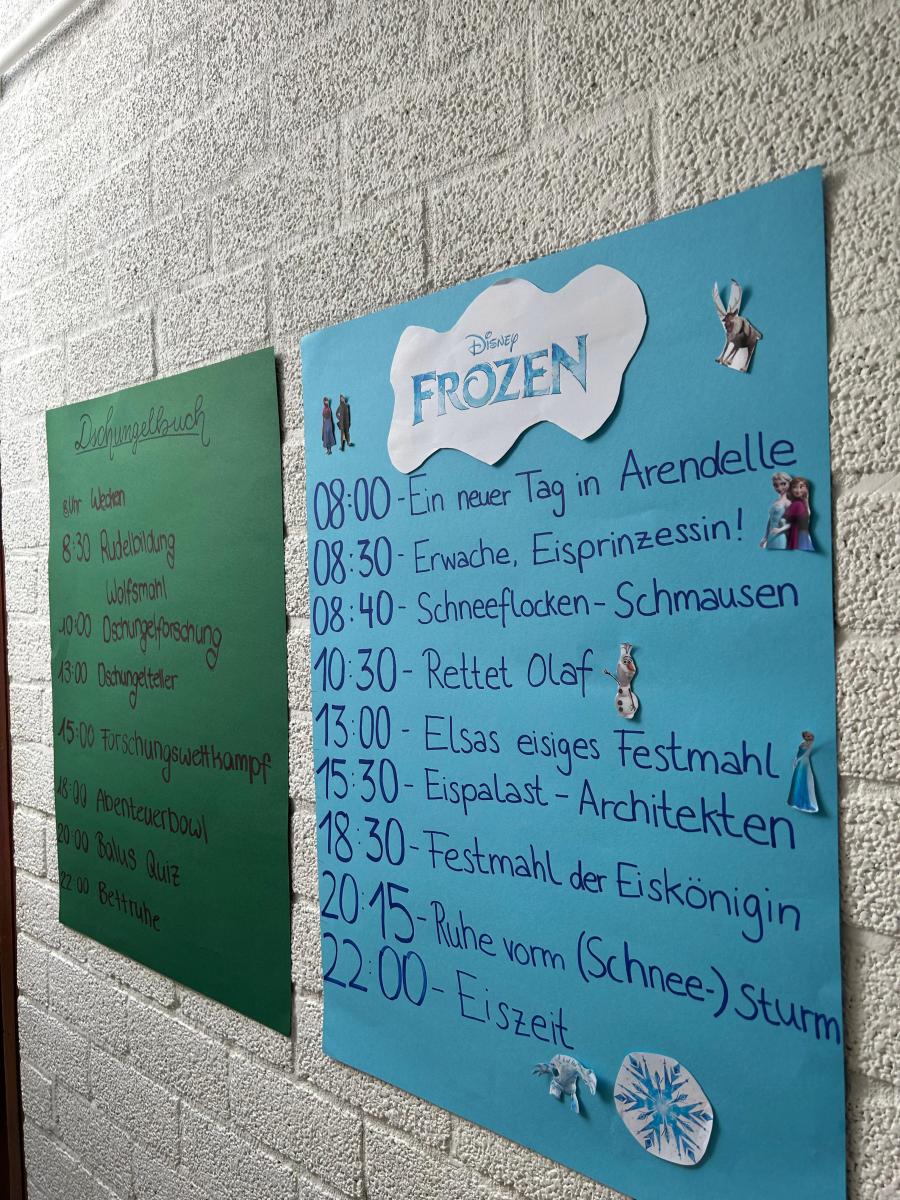 Dschungelbuch
8Uhr Wecken
8:30 Rudelbildung
Wolfsmahl
10:00 Dschungelforschung
13:00 Dschungelteller
15:00 Forschungswettkampf
18:00 Abenteuerbowl
20:00 Balus Quiz
22:00 Bettruhe
Disney
FROZEN
08:00 - Ein neuer Tag in Arendelle
08:30 - Erwache, Eisprinzessin!
08:40 - Schneeflocken - Schmausen
10:30 - Rettet Olaf
13:00 - Elsas eisiges Festmahl
15:30 - Eispalast - Architekten
18:30 - Festmahl der Eiskönigin
20:15 - Ruhe vorm (Schnee-) Sturm
22:00 - Eiszeit